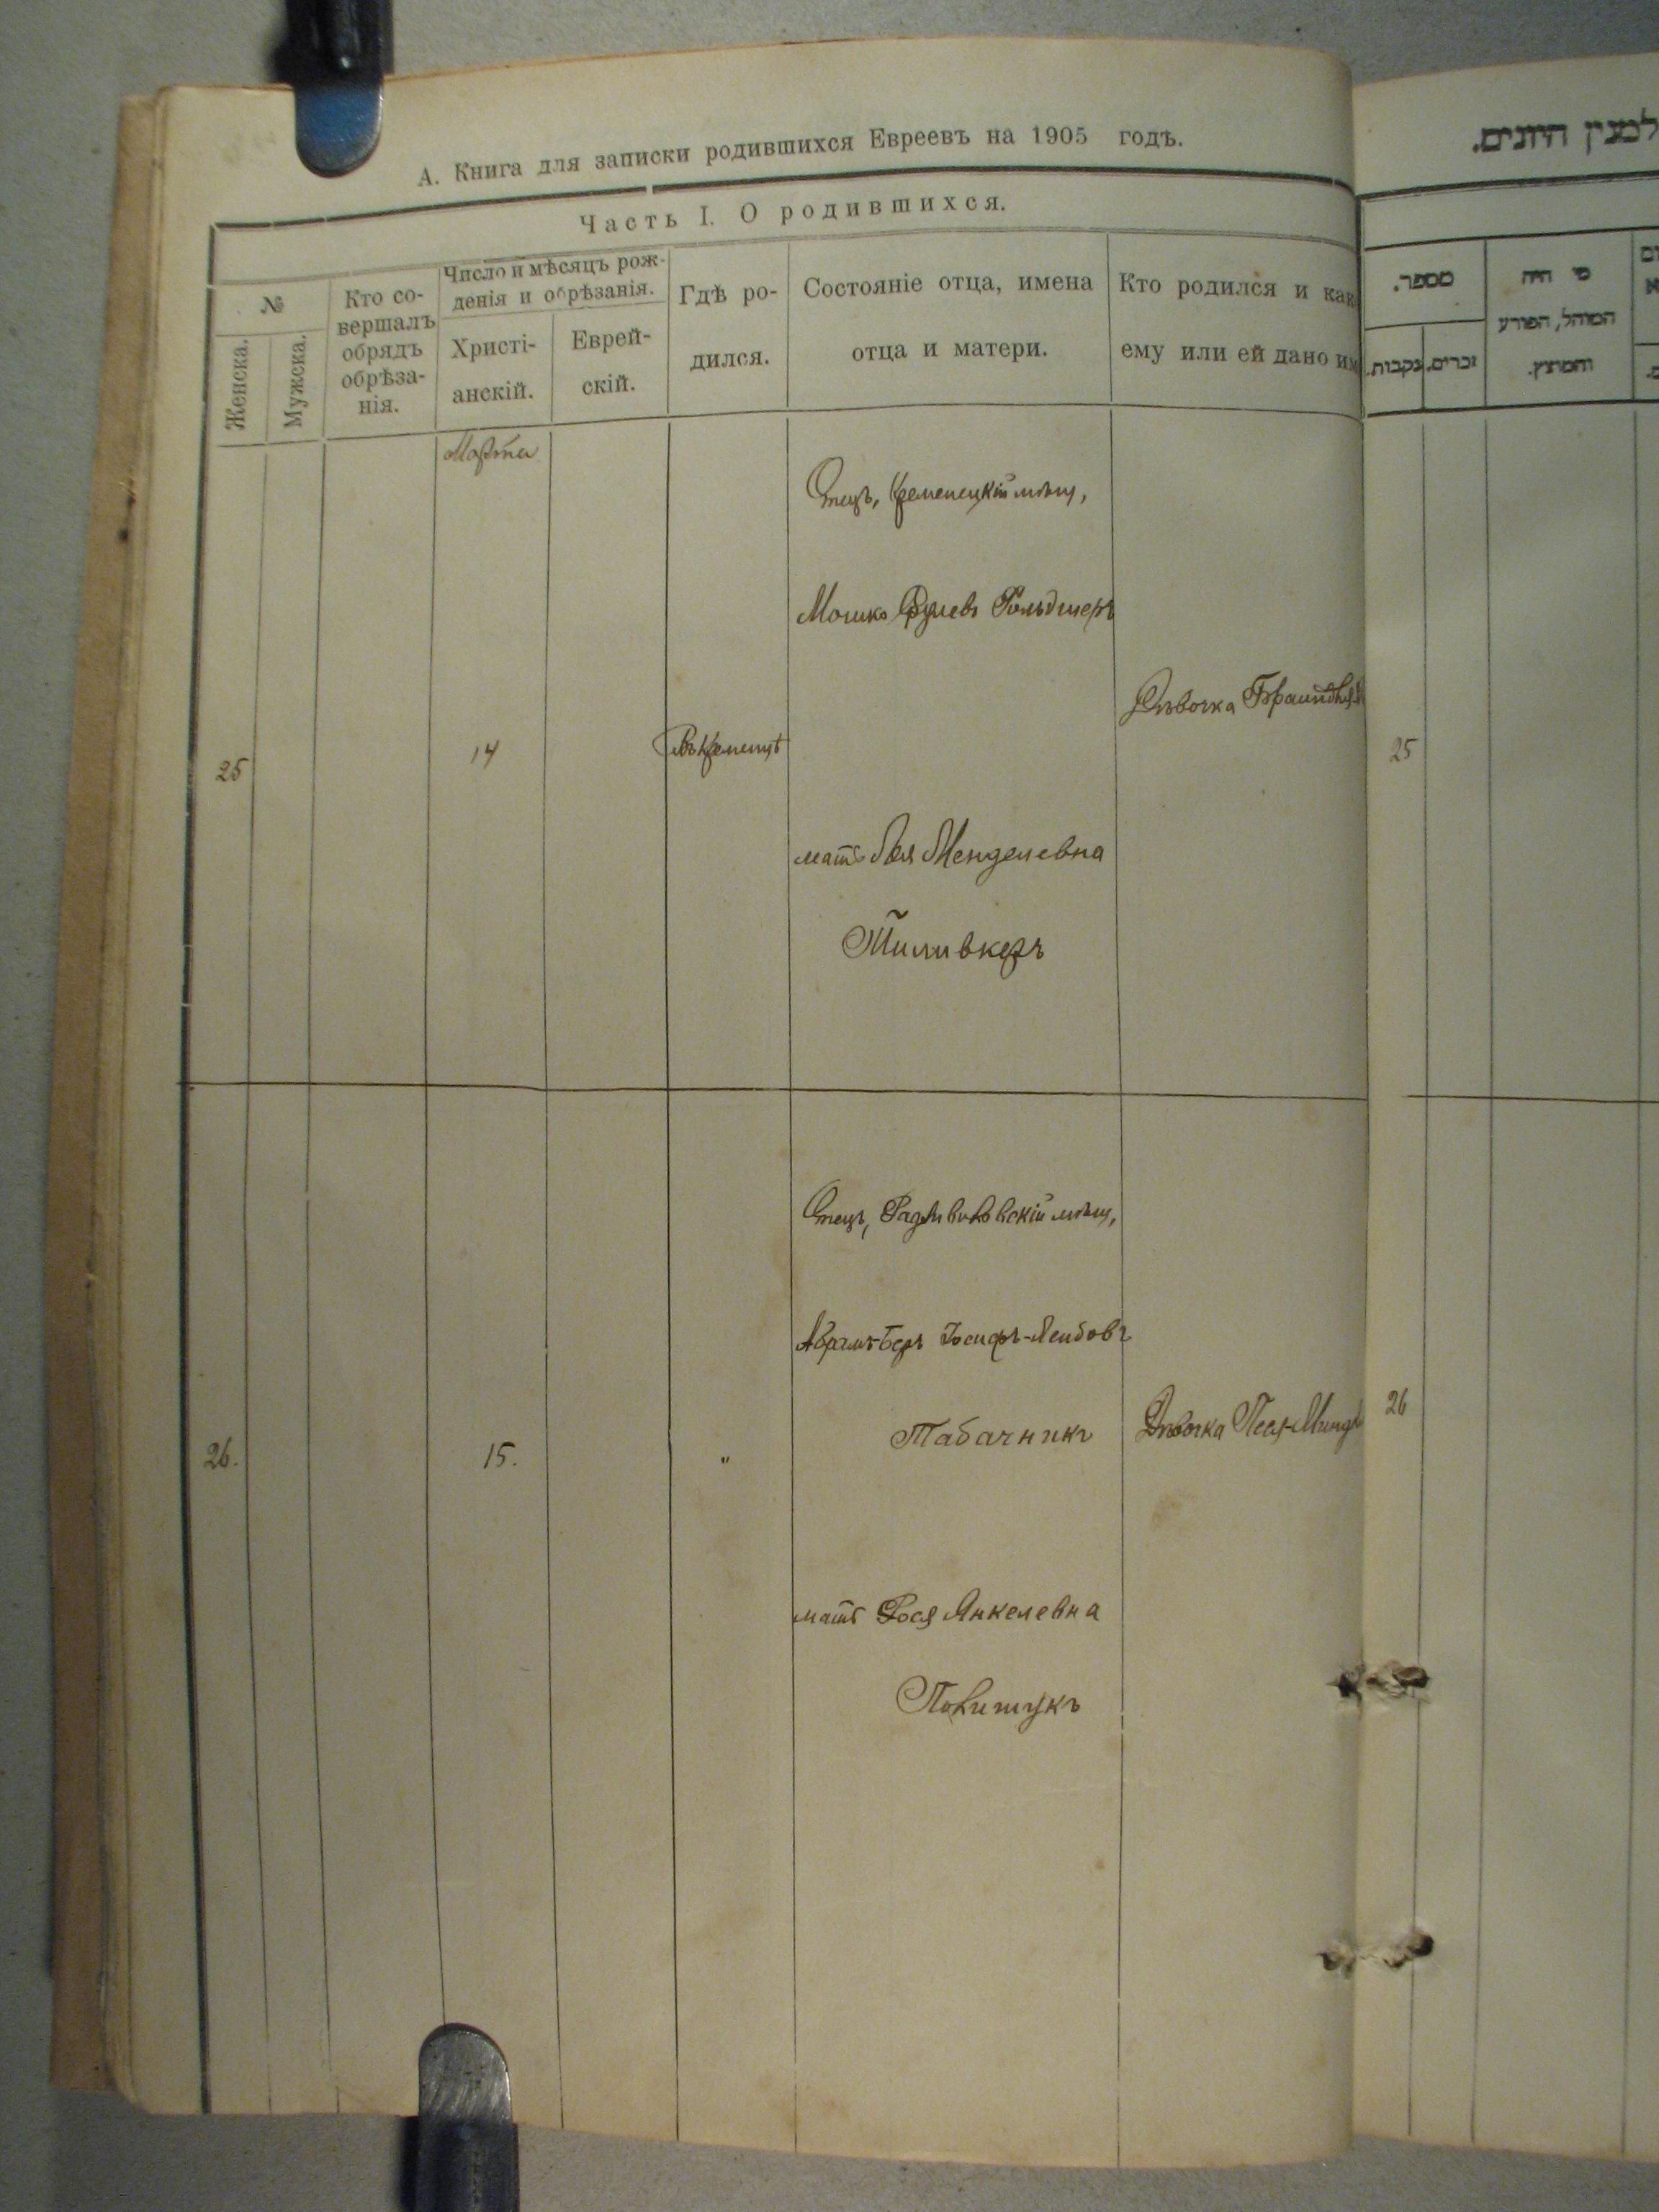 А. Книга для записки родившихся Евреевъ на 1905 годъ.
Часть I. О родившихся.
№
Женска.
Мужска.
Кто со-
вершалъ
обрядъ
обрѣза-
нія.
Число и мѣсяцъ рож-
денія и обрѣзанія.
Христі-
анскій.
Еврей-
скій.
Гдѣ ро-
дился.
Состояніе отца, имена
отца и матери.
Кто родился и как
ему или ей дано им
Марта
25
14
Въ Кременцѣ
Отецъ, Кременецкій мѣщ,
Мошко Срулевъ
мать Лея Менделевна
Тиливкеръ
Дѣвочка
26.
15.
"
Отецъ, Радзивиловскій мѣщ,
Абрамъ-Беръ Іосифъ-Лейбовъ
Табачникъ
мать Рося Янкелевна
Полищукъ
Дѣвочка Песя-
למנין היונים.
מספר.
נקבות.
זכרים.
מי היה
המוהל, הפורע
והמוצץ.
25
26